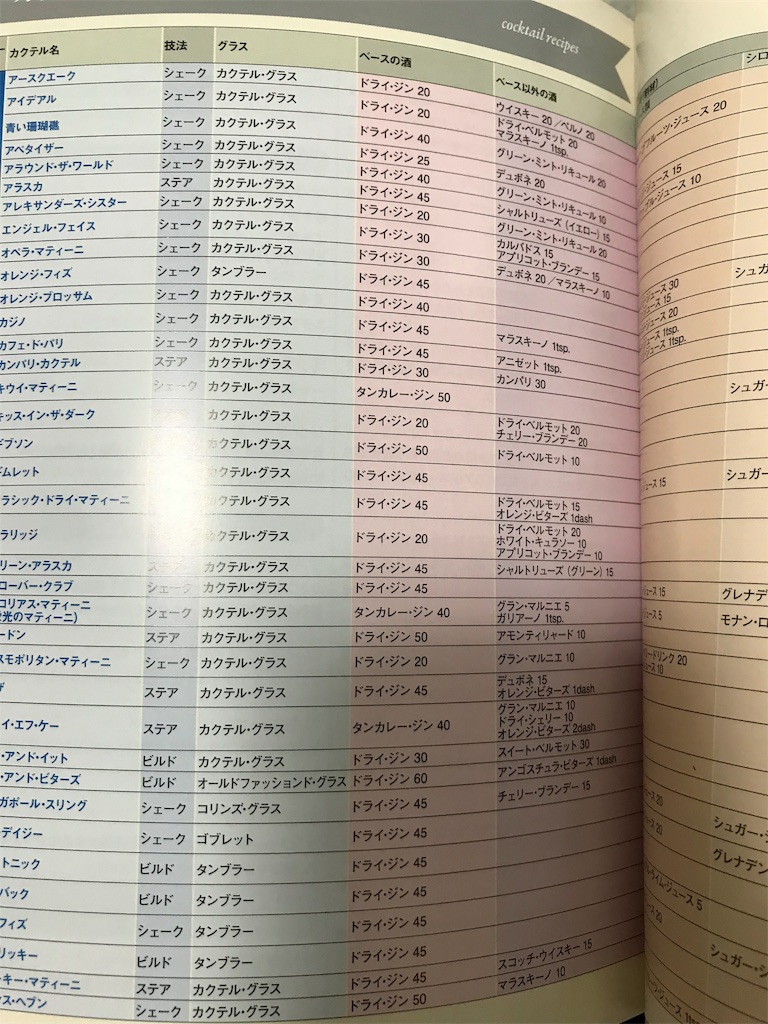 cocktail recipes
カクテル名 技法 グラス ベースの酒 ベース以外の酒
アースクエーク シェーク カクテル・グラス ドライ・ジン 20 ウイスキー 20/ペルノ 20
アイデアル シェーク カクテル・グラス ドライ・ジン 20 ドライ・ベルモット 20
マラスキーノ 1tsp.
青い珊瑚礁 シェーク カクテル・グラス ドライ・ジン 40 グリーン・ミント・リキュール 20
アペタイザー シェーク カクテル・グラス ドライ・ジン 25 デュボネ 20
アラウンド・ザ・ワールド シェーク カクテル・グラス ドライ・ジン 40 グリーン・ミント・リキュール 10
アラスカ ステア カクテル・グラス ドライ・ジン 45 シャルトリューズ(イエロー)15
アレキサンダーズ・シスター シェーク カクテル・グラス ドライ・ジン 20 グリーン・ミント・リキュール 20
エンジェル・フェイス シェーク カクテル・グラス ドライ・ジン 30 カルバドス 15
アプリコット・ブランデー 15
オペラ・マティーニ シェーク カクテル・グラス ドライ・ジン 30 デュボネ 20/マラスキーノ 10
オレンジ・フィズ シェーク タンブラー ドライ・ジン 45
オレンジ・ブロッサム シェーク カクテル・グラス ドライ・ジン 40
カジノ シェーク カクテル・グラス ドライ・ジン 45 マラスキーノ 1tsp.
カフェ・ド・パリ シェーク カクテル・グラス ドライ・ジン 45 アニゼット 1tsp.
カンパリ・カクテル ステア カクテル・グラス ドライ・ジン 30 カンパリ 30
キウイ・マティーニ シェーク カクテル・グラス タンカレー・ジン 50
キッス・イン・ザ・ダーク カクテル・グラス ドライ・ジン 20 ドライ・ベルモット 20
チェリー・ブランデー 20
ギブソン カクテル・グラス ドライ・ジン 50 ドライ・ベルモット 10
ムレット カクテル・グラス ドライ・ジン 45
ラシック・ドライ・マティーニ カクテル・グラス ドライ・ジン 45 ドライ・ベルモット 15
オレンジ・ビターズ 1dash
ラリッジ カクテル・グラス ドライ・ジン 20 ドライ・ベルモット 20
ホワイト・キュラソー 10
アプリコット・ブランデー 10
リーン・アラスカ ステア カクテル・グラス ドライ・ジン 45 シャルトリューズ(グリーン)15
ローバー・クラブ シェーク カクテル・グラス ドライ・ジン 45
コリアス・マティーニ シェーク カクテル・グラス タンカレー・ジン 40 グラン・マルニエ 5
光のマティーニ) ガリアーノ 1tsp.
ードン ステア カクテル・グラス ドライ・ジン 50 アモンティリャード 10
スモポリタン・マティーニ シェーク カクテル・グラス ドライ・ジン 20 グラン・マルニエ 10
ザ ステア カクテル・グラス ドライ・ジン 45 デュボネ 15
オレンジ・ビターズ 1dash
イ・エフ・ケー ステア カクテル・グラス タンカレー・ジン 40 グラン・マルニエ 10
ドライ・シェリー 10
オレンジ・ビターズ 2dash
・アンド・イット ビルド カクテル・グラス ドライ・ジン 30 スイート・ベルモット 30
・アンド・ビターズ ビルド オールドファッションド・グラス ドライ・ジン 60 アンゴスチュラ・ビターズ 1dash
ガポール・スリング シェーク コリンズ・グラス ドライ・ジン 45 チェリー・ブランデー 15
デイジー シェーク ゴブレット ドライ・ジン 45
トニック ビルド タンブラー ドライ・ジン 45
バック ビルド タンブラー ドライ・ジン 45
フィズ シェーク タンブラー ドライ・ジン 45
リッキー ビルド タンブラー ドライ・ジン 45
ーキー・マティーニ ステア カクテル・グラス ドライ・ジン 45 スコッチ・ウイスキー 15
ス・ヘブン シェーク カクテル・グラス ドライ・ジン 50 マラスキーノ 10
シロ
フルーツ・ジュース 20
ジュース 15
ジュース 10
シュガ
ジュース 30
ジュース 15
ジュース 20
ジュース 1tsp.
ジュース 1tsp.
シュガ
ュース 15 シュガー
ジュース 15 グレナデ
ジュース 5 モナン・ロ
ードリンク 20
ュース 10
ュース 20
ース 20 シュガー・シ
グレナデン
ライム・ジュース 5
ース 20 シュガー・シ
ジュース 1tsp